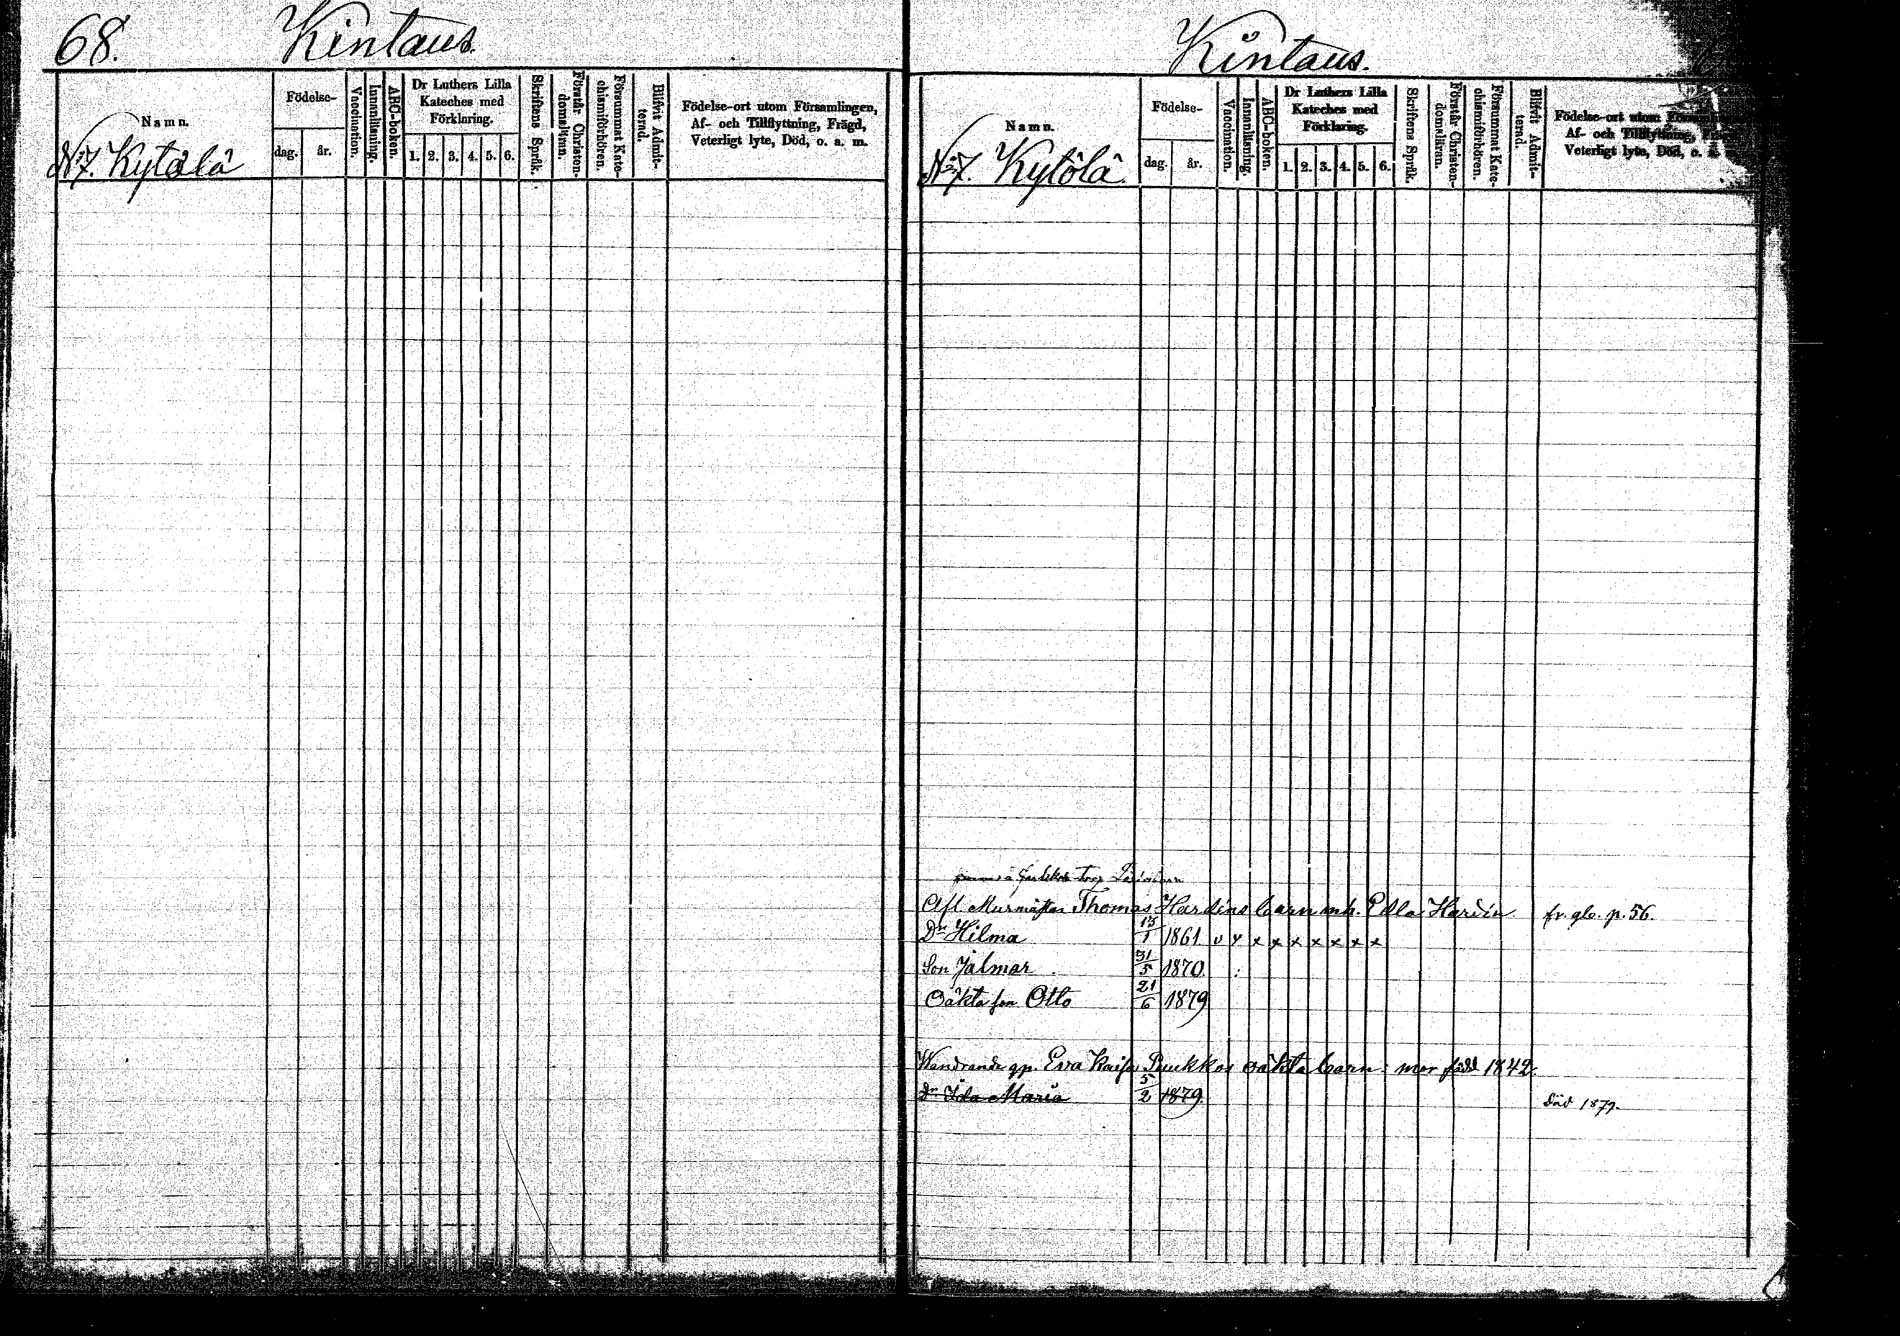 68. Kintaus.
Namn.
N:o 7. Kytölä
Födelse-
dag. år.
Vaccination.
Innanläsning.
ABC-boken.
Dr Luthers Lilla
Kateches med
Förklaring.
1. 2. 3. 4. 5. 6.
Skriftens Språk.
Förstår Christen-
domslären.
Försummat Kate-
chismiförhören.
Blifvit Admit-
terad.
Födelse-ort utom Församlingen,
Af- och Tillflyttning, Frägd,
Veterligt lyte, Död, o. a. m.
Kintaus.
Namn.
N:o 7. Kytölä.
Födelse-
dag. år.
Vaccination.
Innanläsning.
ABC-boken.
Dr Luthers Lilla
Kateches med
Förklaring.
1. 2. 3. 4. 5. 6.
Skriftens Språk.
Förstår Christen-
domslären.
Försummat Kate-
chismiförhören.
Blifvit Admit-
terad.
Födelse-ort utom
Af- och Tillflyttning,
Veterligt lyte, Död, o. a.
torp
Afl. Thomas Hardins barn mh. Edla Hardin fr. glo. p. 56.
Dr Hilma 13/1 1861 v v x x x x x x x
Son Jalmar 31/5 1870
Oäkta son Otto 21/6 1879
Wandrande qp. Eva Kaisa Puukkos oäkta barn: mor född 1842.
Dr Ida Maria 5/2 1879 död 1879.